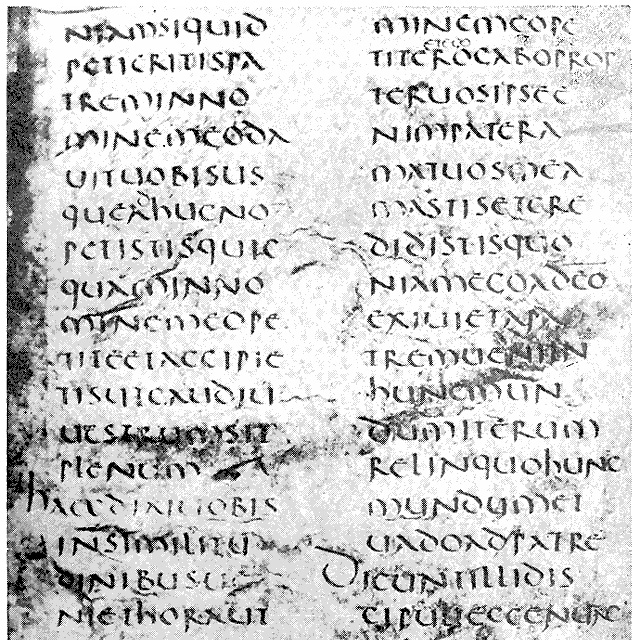 NIAMSIQUID
PETIERITISPA
TREMINNO
MINEMEODA
UITUOBISUS
QUEADHUCNO
PETISTISQUIC
QUAMINNO
MINEMEOPE
TITEETACCIPIE
TISUTGAUDIU
UESTRUMSIT
PLENUM
hAECDIXIUOBIS
INSIMILITU
DINIBUSUE
NIEThORAUT
MINEMEOPE
ETEGO
TITEROGABOPROP
TERUOSIPSEE
NIMPATERA
MATUOSMEA
MASTISETCRE
DIDISTISQUO
NIAMEGOADEO
EXIUIETAPA
TREMUENIIN
hUNCMUN
DUMITERUM
RELINQUOhUNC
MUNDUMET
UADOADPATRE
DICUNTILLIDIS
CIPULIECCENUNC